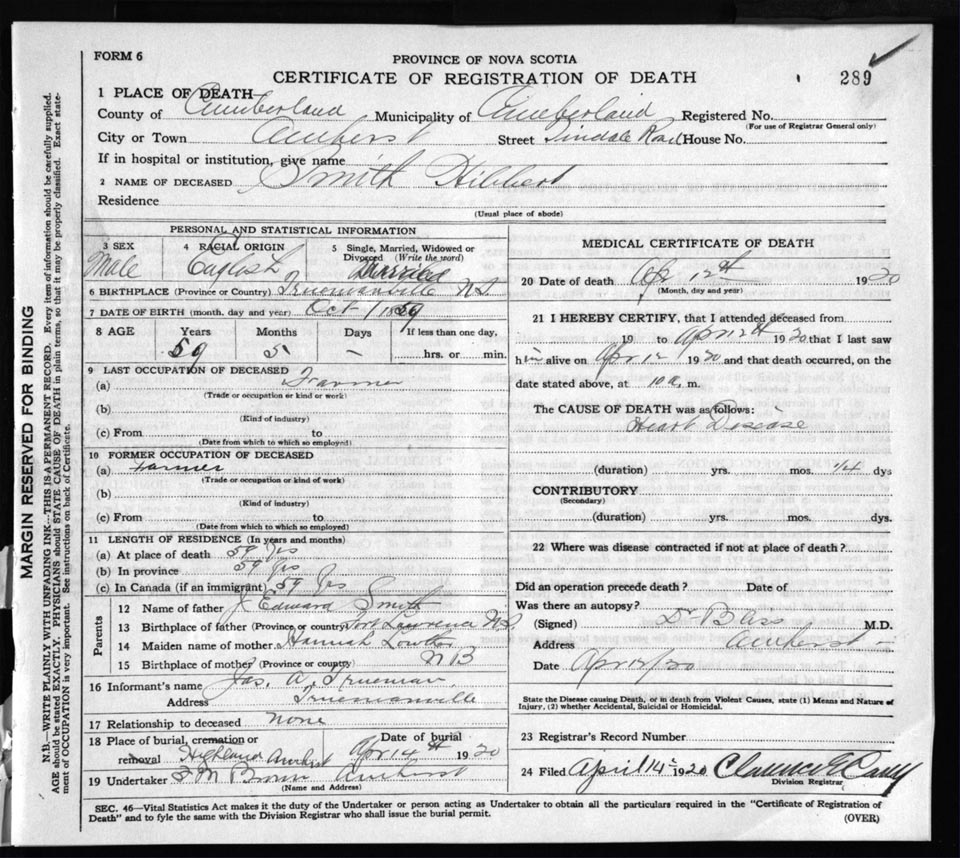 FORM 6
PROVINCE OF NOVA SCOTIA
CERTIFICATE OF REGISTRATION OF DEATH
289
1 PLACE OF DEATH
County of Cumberland Municipality of Cumberland Registered No.
(For use of Registrar General only)
City or Town Amherst Street Tindale Road House No.
If in hospital or institution, give name
2 NAME OF DECEASED Smith Hibbert
Residence
(Usual place of abode)
PERSONAL AND STATISTICAL INFORMATION
3 SEX Male
4 RACIAL ORIGIN English
5 Single, Married, Widowed or Divorced (Write the word) Married
6 BIRTHPLACE (Province or Country) Truemanville N.S.
7 DATE OF BIRTH (month, day and year) Oct
8 AGE Years Months Days If less than one day,
59 5 – hrs. or min.
9 LAST OCCUPATION OF DECEASED
(a) Farmer
(Trade or occupation or kind or work)
(b)
(Kind of industry)
(c) From to
(Date from which to which so employed)
10 FORMER OCCUPATION OF DECEASED
(a) Farmer
(Trade or occupation or kind of work)
(b)
(Kind of industry)
(c) From to
(Date from which to which so employed)
11 LENGTH OF RESIDENCE (In years and months)
(a) At place of death 59 Yrs
(b) In province 59 Yrs
(c) In Canada (if an immigrant) 59 Yrs
Parents
12 Name of father J. Edward Smith
13 Birthplace of father (Province or country) Fort Lawrence N.S.
14 Maiden name of mother Hannah Lowther
15 Birthplace of mother (Province or country) N B
16 Informant's name Jas. A. Trueman
Address Truemanville
17 Relationship to deceased none
18 Place of burial, cremation or removal Highland Amherst Date of burial Apr 14th 1920
19 Undertaker Brown Amherst
(Name and Address)
MEDICAL CERTIFICATE OF DEATH
20 Date of death Apr 12th 1920
(Month, day and year)
21 I HEREBY CERTIFY, that I attended deceased from
19 to Apr 12th 1920 that I last saw
him alive on Apr 12 1920 and that death occurred, on the
date stated above, at 10 a. m.
The CAUSE OF DEATH was as follows:
Heart Disease
(duration) yrs. mos. 14 dys
CONTRIBUTORY
(Secondary)
(duration) yrs. mos. dys.
22 Where was disease contracted if not at place of death?
Did an operation precede death? Date of
Was there an autopsy?
(Signed) Dr Bliss M.D.
Address Amherst
Date Apr 12/20
State the Disease causing Death, or in death from Violent Causes, state (1) Means and Nature of
Injury, (2) whether Accidental, Suicidal or Homicidal.
23 Registrar's Record Number
24 Filed April 14th 1920 Clarence E Casey
Division Registrar
SEC. 46—Vital Statistics Act makes it the duty of the Undertaker or person acting as Undertaker to obtain all the particulars required in the "Certificate of Registration of
Death" and to fyle the same with the Division Registrar who shall issue the burial permit.
(OVER)
MARGIN RESERVED FOR BINDING
N.B.—WRITE PLAINLY WITH UNFADING INK—THIS IS A PERMANENT RECORD. Every item of information should be carefully supplied.
AGE should be stated EXACTLY. PHYSICIANS should STATE CAUSE OF DEATH in plain terms, so that it may be properly classified. Exact state-
ment of OCCUPATION is very important. See instructions on back of Certificate.